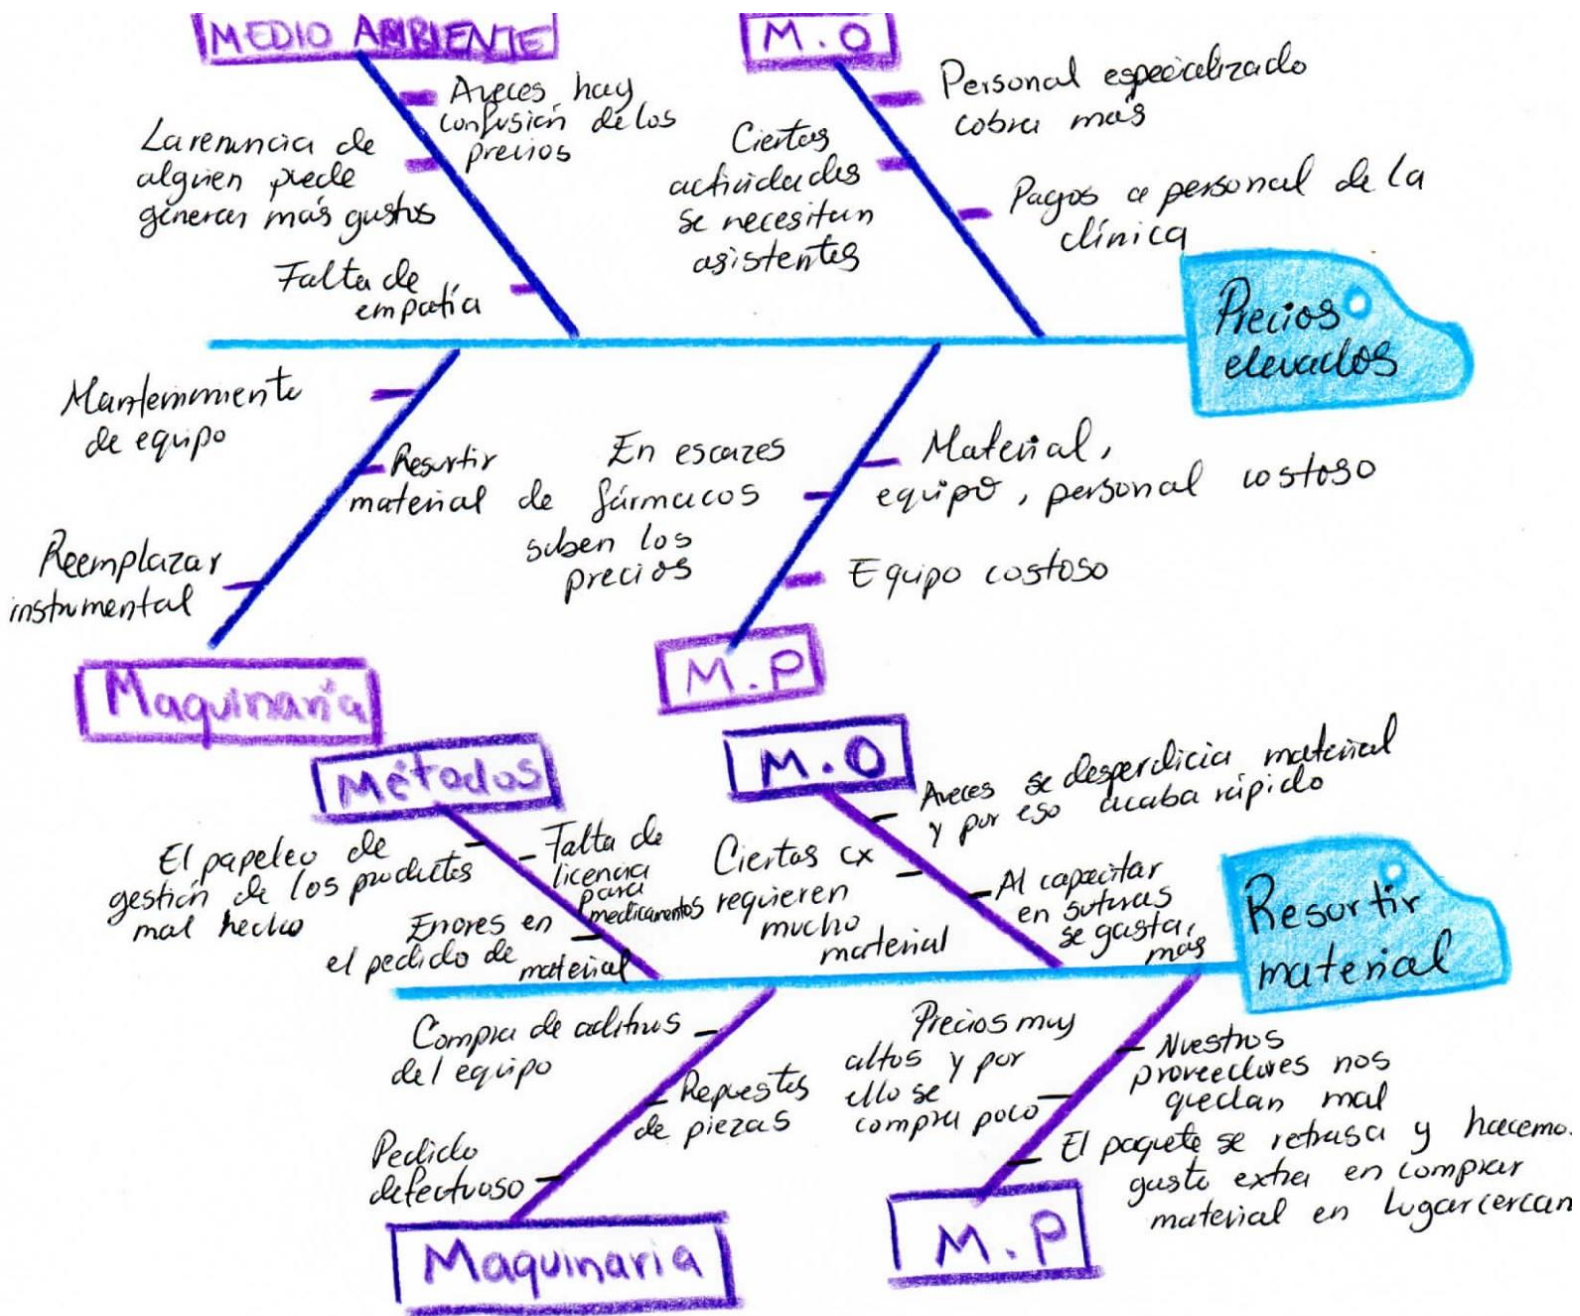 MEDIO AMBIENTE
Aveces hay
confusión de los
precios
La renuncia de
alguien puede
generar más gastos
Falta de
empatía
M.O
Personal especializado
cobra más
Ciertas
actividades
se necesitan
asistentes
Pagos a personal de la
clínica
Precios
elevados
Mantenimiento
de equipo
Resurtir
material
Reemplazar
instrumental
Maquinaría
En escazes
de fármacos
suben los
precios
Material,
equipo, personal costoso
Equipo costoso
M.P
Métodos
El papeleo de
gestión de los productos
mal hecho
Falta de
licencia
para
medicamentos
Errores en
el pedido de
material
M.O
Aveces se desperdicia material
y por eso acaba rápido
Ciertas cx
requieren
mucho
material
Al capacitar
en suturas
se gasta
más
Resurtir
material
Compra de aditivos
del equipo
Repuestos
de piezas
Pedido
defectuoso
Maquinaria
Precios muy
altos y por
ello se
compra poco
Nuestros
proveedores nos
quedan mal
El paquete se retrasa y hacemo
gasto extra en comprar
material en lugar cercan
M.P